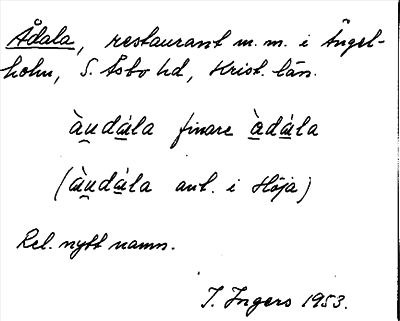 Ådala, restaurant m.m. i Ängel-
holm, S. Åsbo hd, Krist. län.
àu̯dá̲la finare à̲dá̲la
(àu̯dá̲la ant. i Höja)
Rel. nytt namn.
I. Ingers 1953.